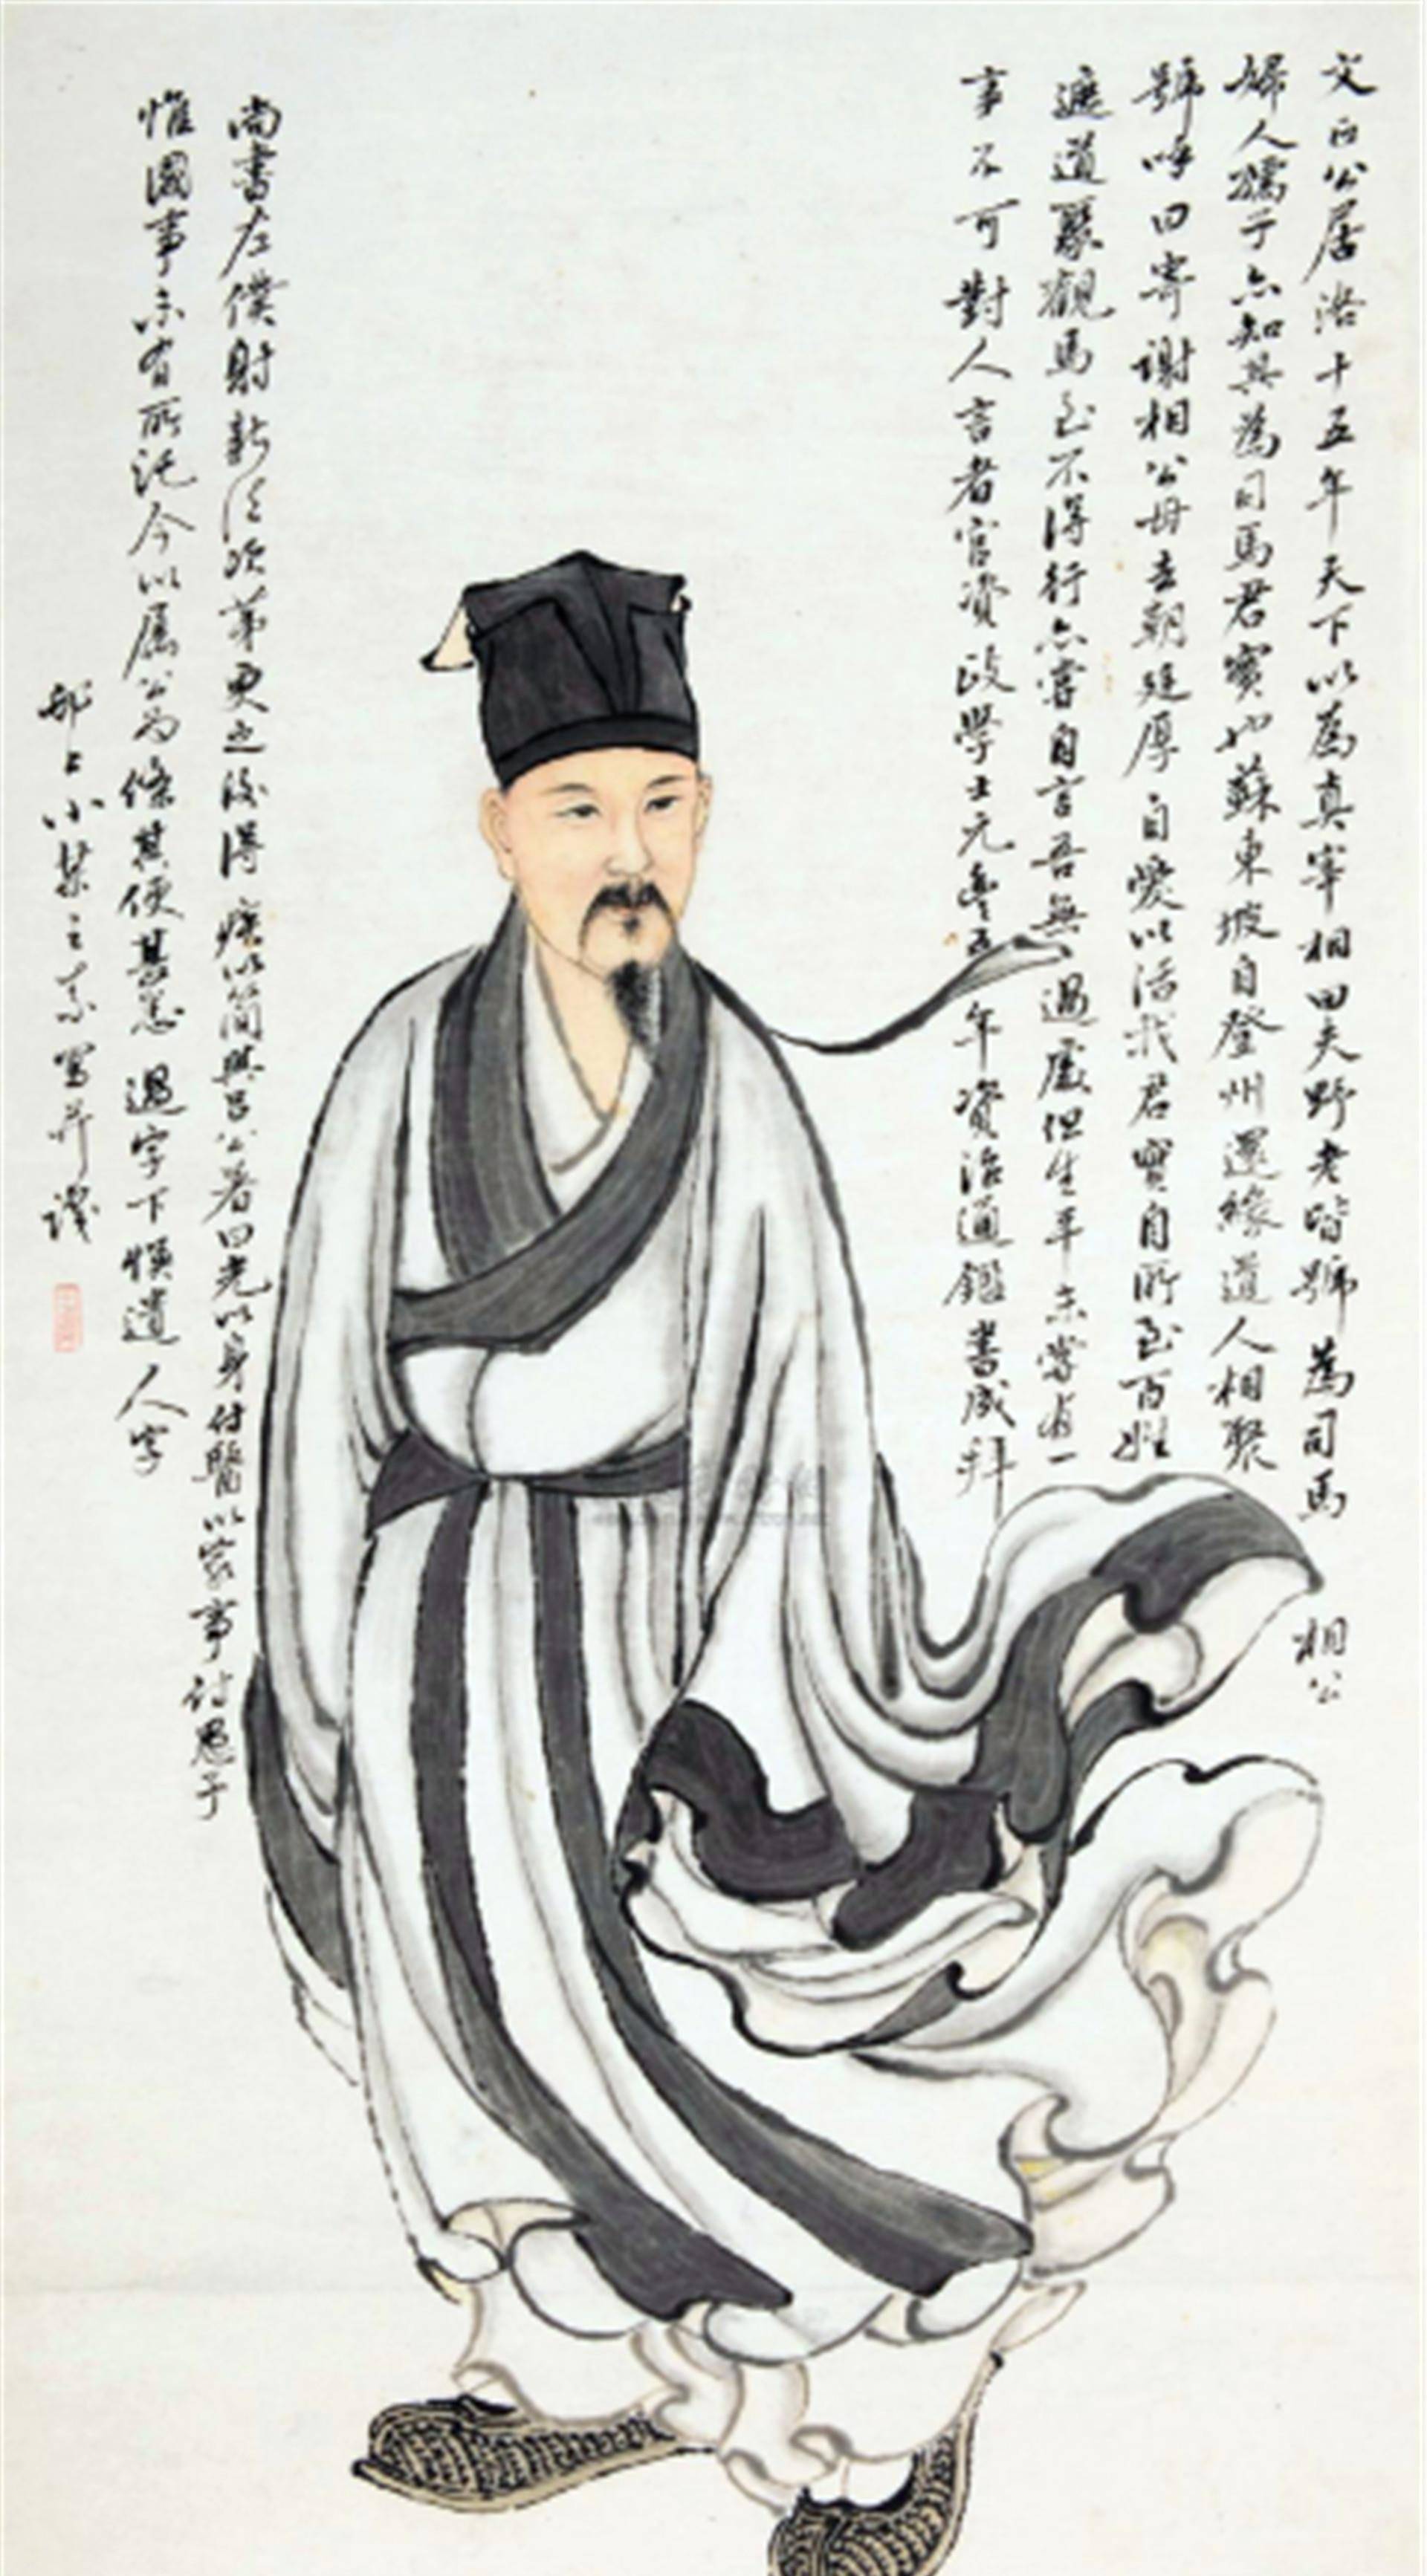 文正公居洛十五年天下以為真宰相田夫野老皆號為司馬相公
婦人孺子亦知其為司馬君實也蘇東坡自登州還緣道人相聚
號呼曰寄謝相公毋去朝廷厚自愛以活我君實自所至百姓
遮道聚觀馬至不得行亦嘗自言吾無過處但生平未嘗有一
事不可對人言者官資政學士元豐五年資治通鑑書成拜
尚書左僕射新法次第更之後得疾以簡與呂公著曰光以身付醫以家事付愚子
惟國事未有所託今以屬公為條其便甚悉 過字下悞遺人字
小某寫并識